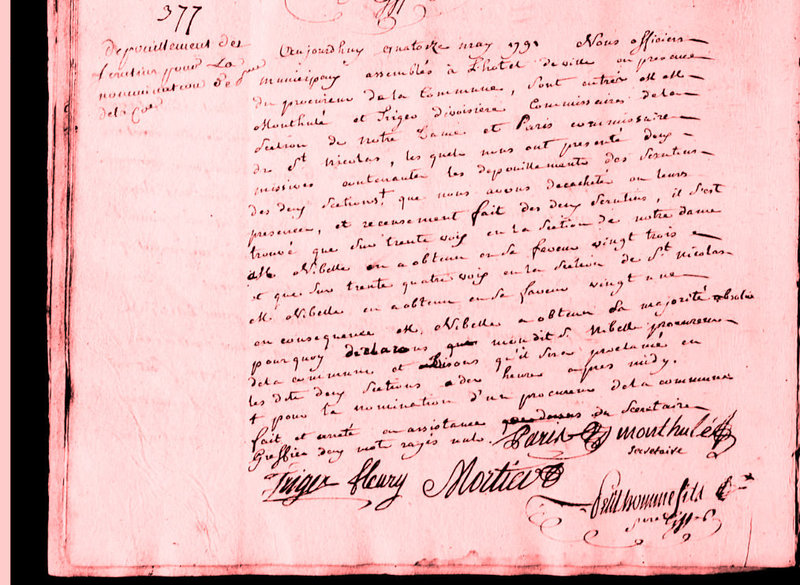 377
Depouillement des
scrutins pour La
nomination d'un
de la Coe
Aujourdhuy quatorze may 1791 Nous officiers
municipaux assemblés à L'hotel de ville en presence
du procureur de la Commune, sont entrés MM
Monthulé et Triger divoisière Commissaires de la
Section de notre Dame et Paris commissaire
de St Nicolas, lesquels nous ont presenté deux
missives contenantes les depouillements des Scrutins
des deux Sections † que nous avons decacheté en leurs
presences, et recensement fait des deux Scrutins, il s'est
trouvé que sur trente voix en la Section de notre dame
M. Nibelle en a obtenu en sa faveur vingt trois
et que sur trente quatre voix en la Section de St Nicolas
M. Nibelle en a obtenu en sa faveur vingt une
en consequence M. Nibelle a obtenu la majorité absolue
pourquoy declarons que mondit S. Nibelle procureur
de la commune et disons qu'il sera proclamé en
les dites deux Sections a deux heures apres midy.
† pour la nomination d'un procureur de la commune
fait et arreté en assistance du Secretaire
Greffier deux mot rayés nuls. Paris monthulé
secretaire
Triger fleury Mortier
Petit homme fils
secre. greff.